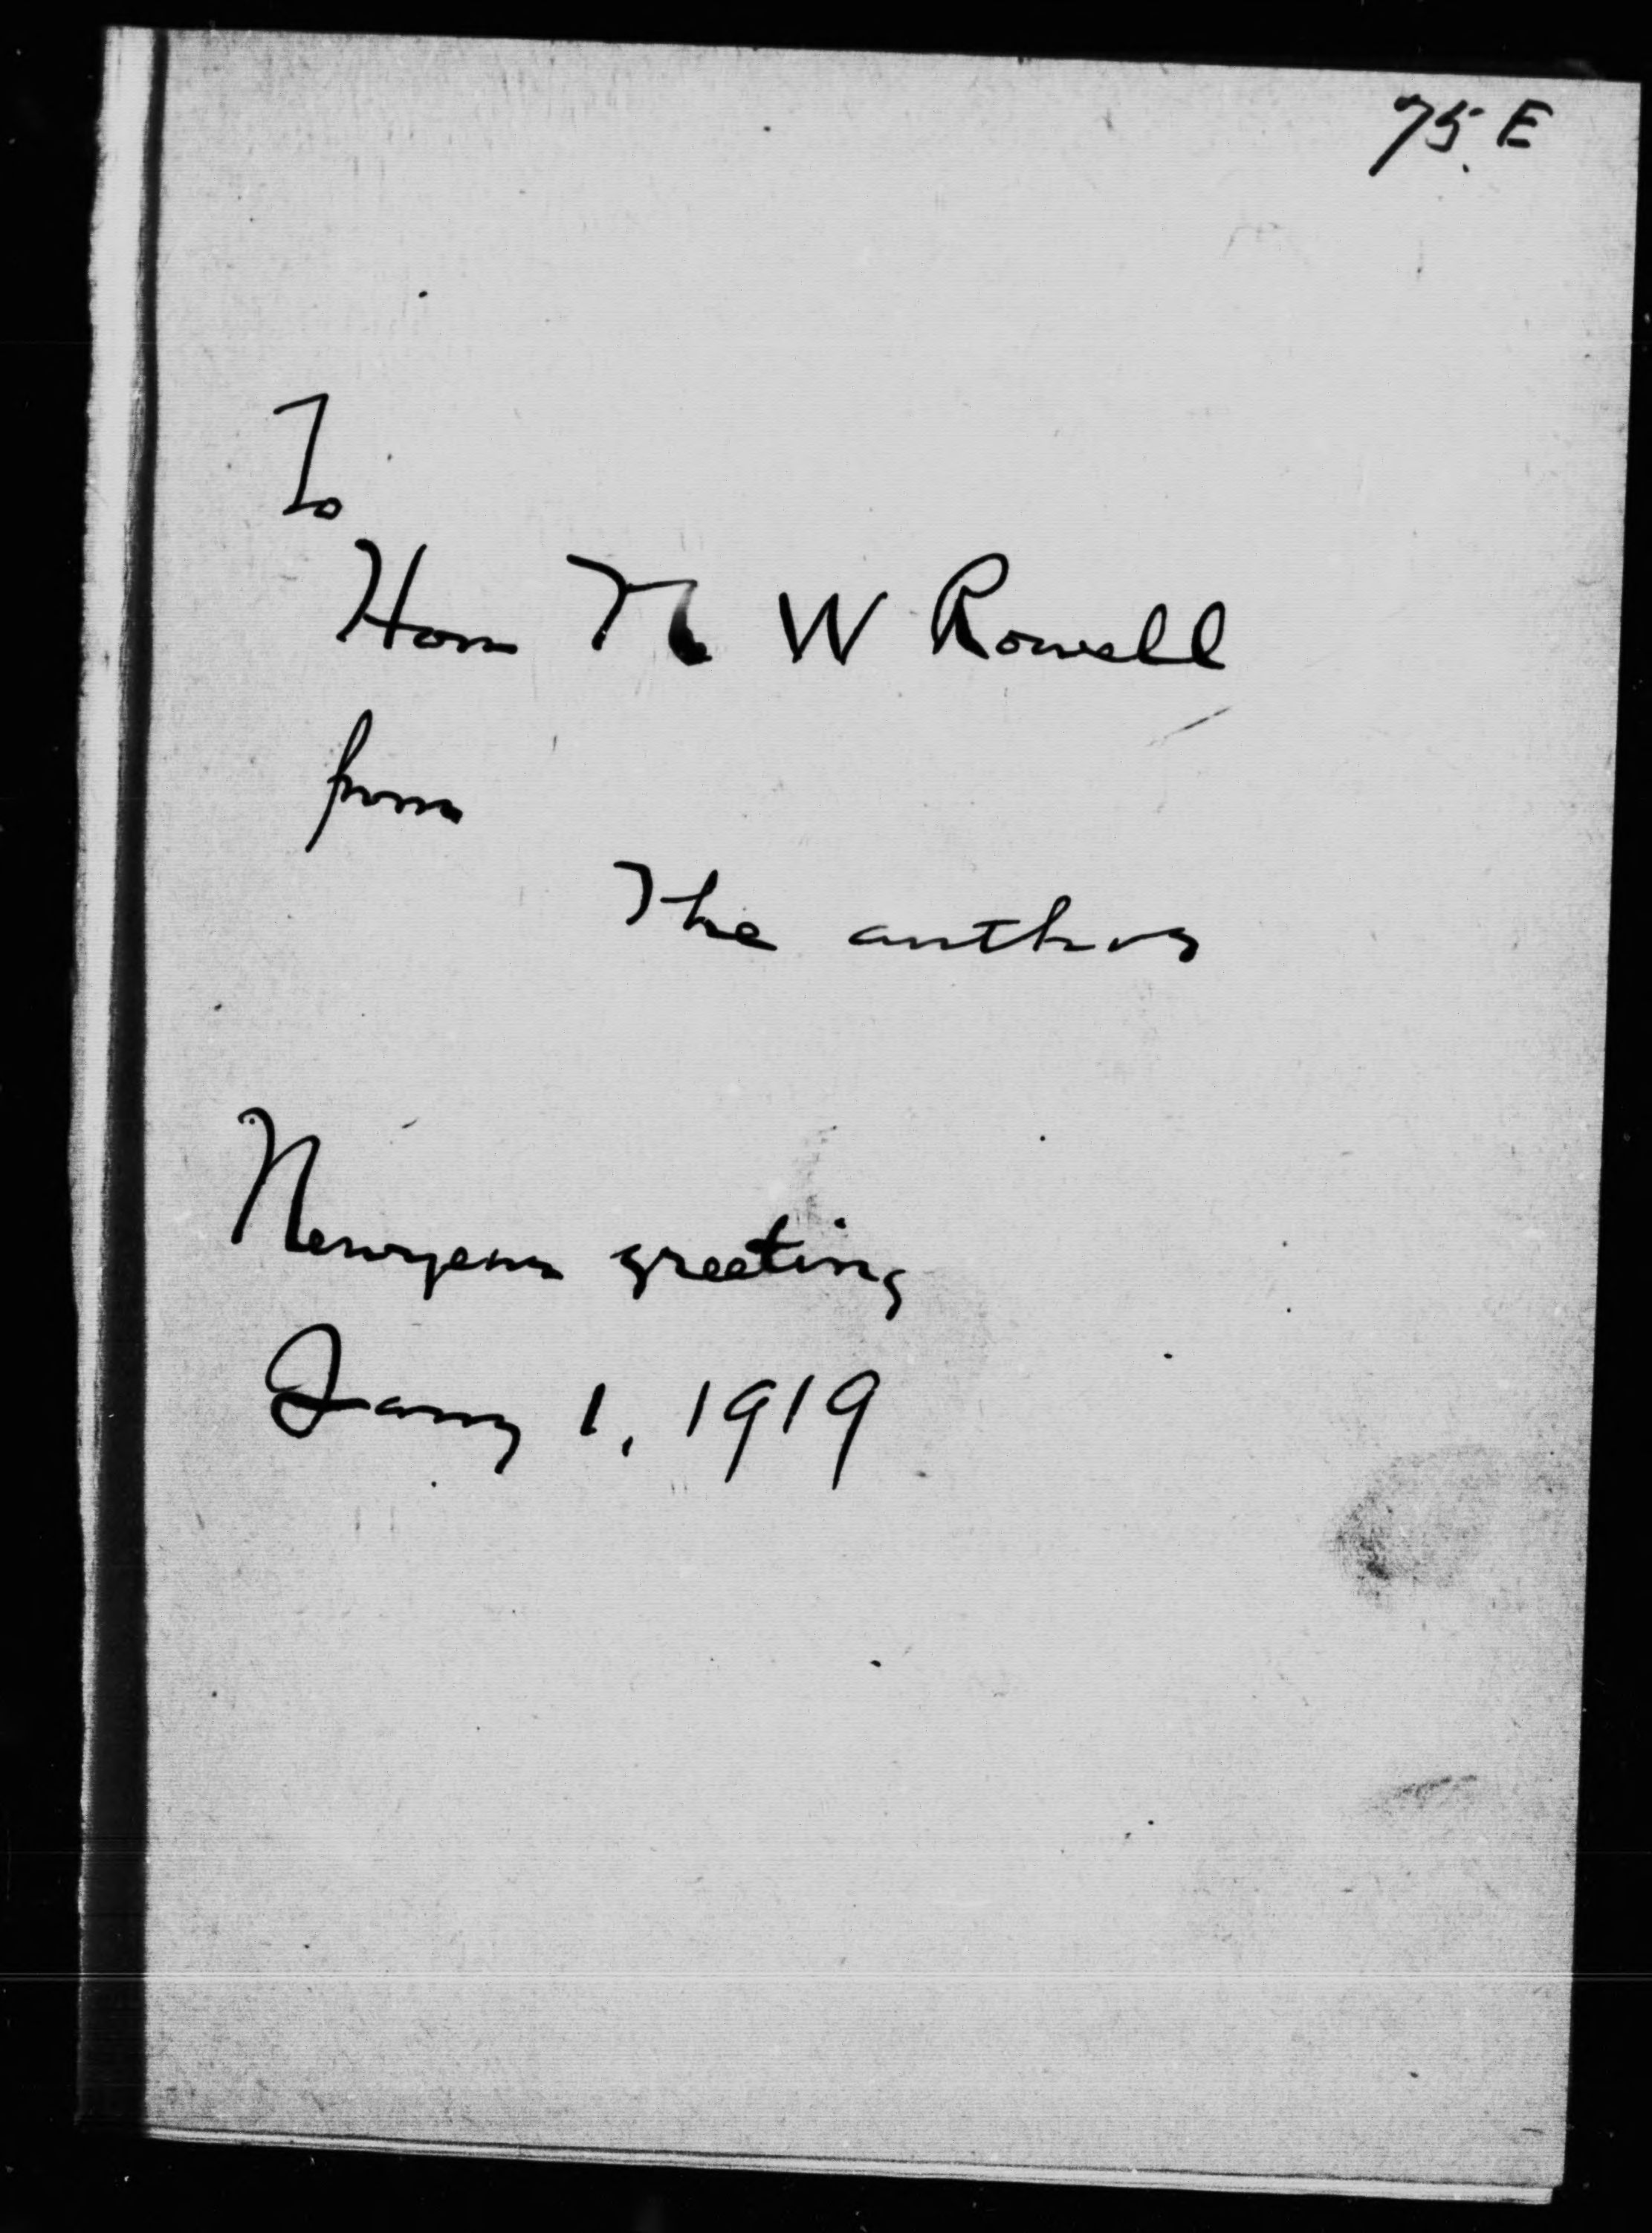 75.E
To
Hon N W Rowell
from
The author
Newyear greeting
Jany 1, 1919